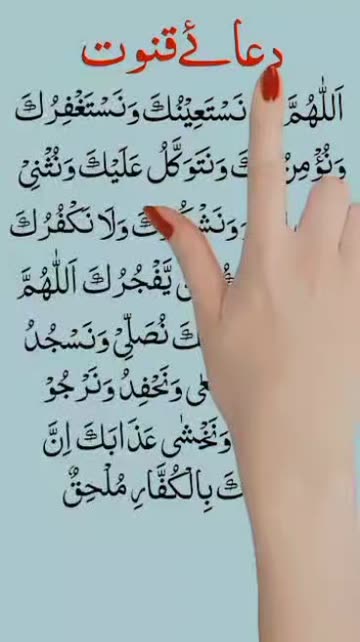 دعائے قنوت
اَللّٰهُمَّ نَسْتَعِيْنُكَ وَنَسْتَغْفِرُكَ
وَنُؤْمِنُ وَنَتَوَكَّلُ عَلَيْكَ وَنُثْنِيْ
وَلَا نَكْفُرُكَ
يَّفْجُرُكَ اَللّٰهُمَّ
نُصَلِّيْ وَنَسْجُدُ
وَنَحْفِدُ وَنَرْجُوْ
وَنَخْشٰى عَذَابَكَ اِنَّ
بِالْكُفَّارِ مُلْحِقٌ